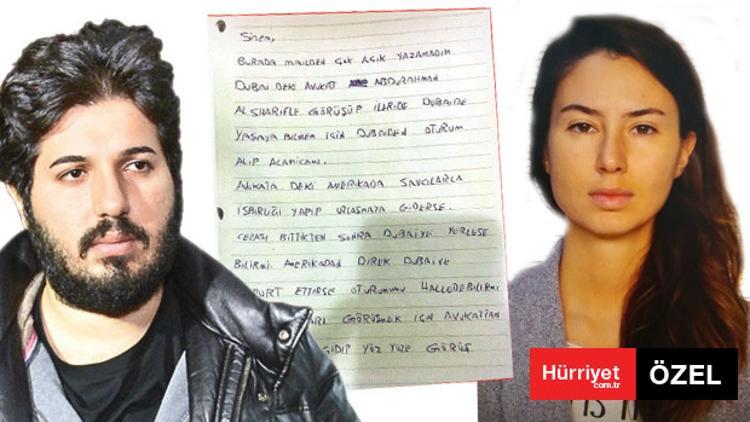 Sinem,
BURADA MAILDEN ÇOK AÇIK YAZAMADIM
DUBAI DEKI AVUKAT ABDURAHMAN
AL SHARIFLE GÖRÜŞÜP İLERIDE DUBAIDE
YAŞAYA BILMEM IÇIN DUBAIDEN OTURUM
ALIP ALAMICAMI.
AVUKATA DEKI AMERIKADA SAVCILARLA
ISBIRLIĞI YAPIP UZLAŞMAYA GIDERSE.
CEZASI BITTIKTEN SONRA DUBAIYE YERLEŞE
BILIRMI. AMERIKADAN DIREK DUBAIYE
PORT ETTIRSE OTURUMUNU HALLEDEBILIRMI
GÖRÜŞMEK IÇIN AVUKATTAN
GIDIP YÜZ YÜZE GÖRÜŞ.
Hürriyet ÖZEL
.com.tr